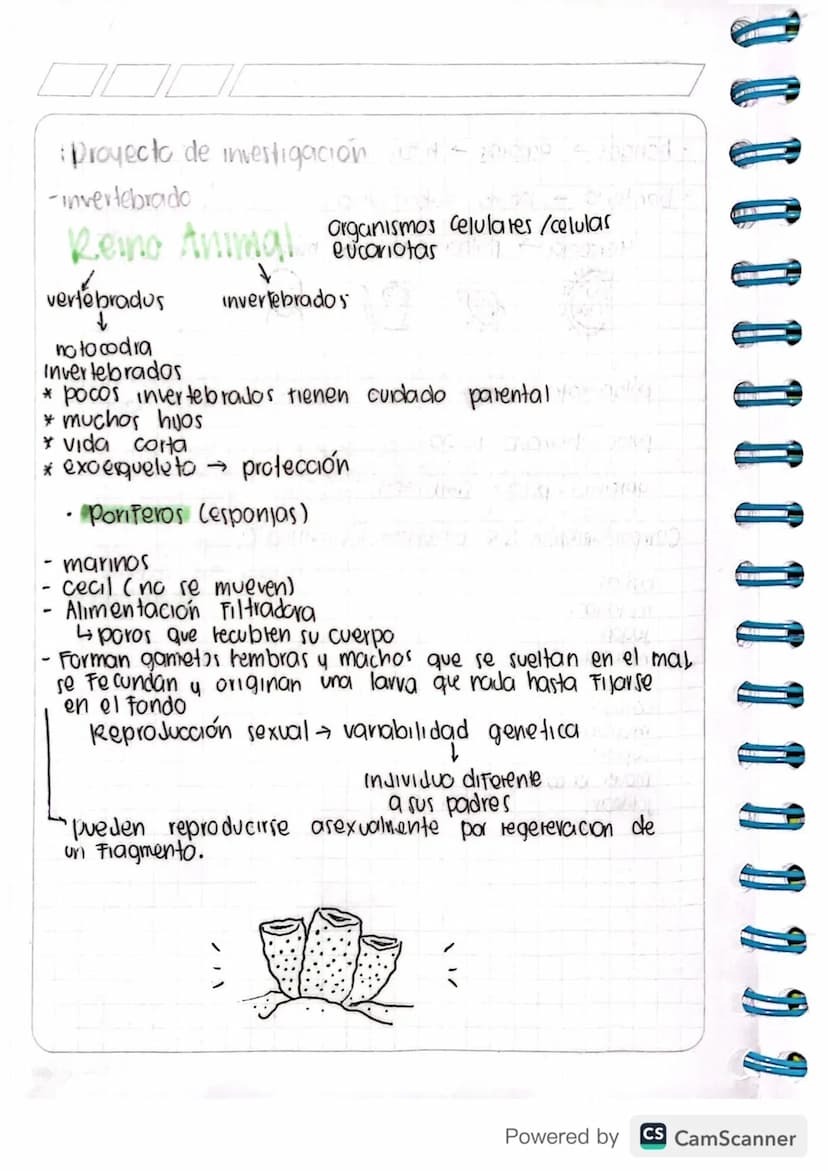 : Proyecto de investigación
- invertebrado
Reino Animal
organismos celulares / celular
eucariotas
vertebrados invertebrados
notocodra
invertebrados
* pocos invertebrados tienen cuidado parental
* muchos hijos
* vida corta
* exoesqueleto → protección
· Poriferos (esponjas)
- marinos
- cecil (no se mueven)
- Alimentación Filtradora
↳ poros que recubren su cuerpo
- Forman gametos hembras y machos que se sueltan en el mar,
se fecundan y originan una larva que nada hasta fijarse
en el fondo
Reproducción sexual → variabilidad genetica
individuo diferente
a sus padres
pueden reproducirse asexualmente por regerevacion de
un fragmento.
Powered by CS CamScanner